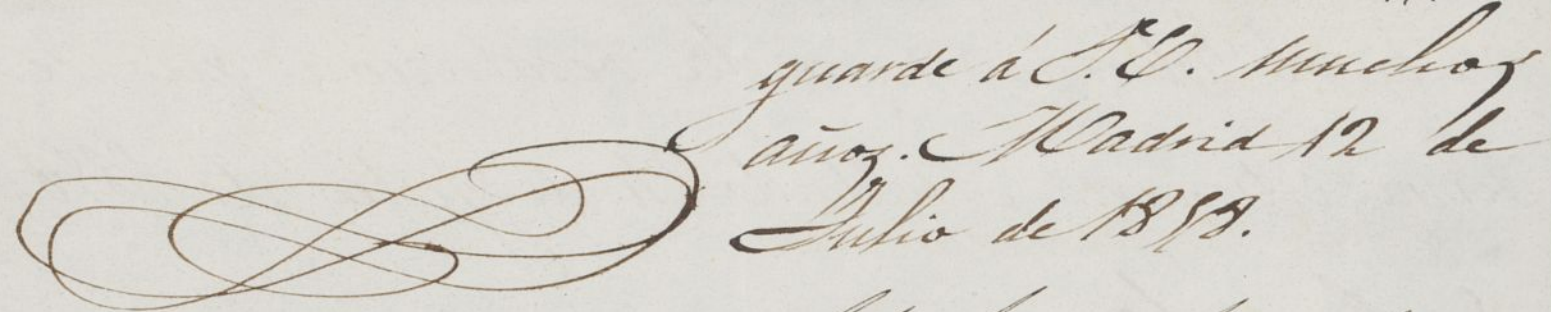 guarde á S. E. muchos
años. Madrid 12 de
Julio de 1858.